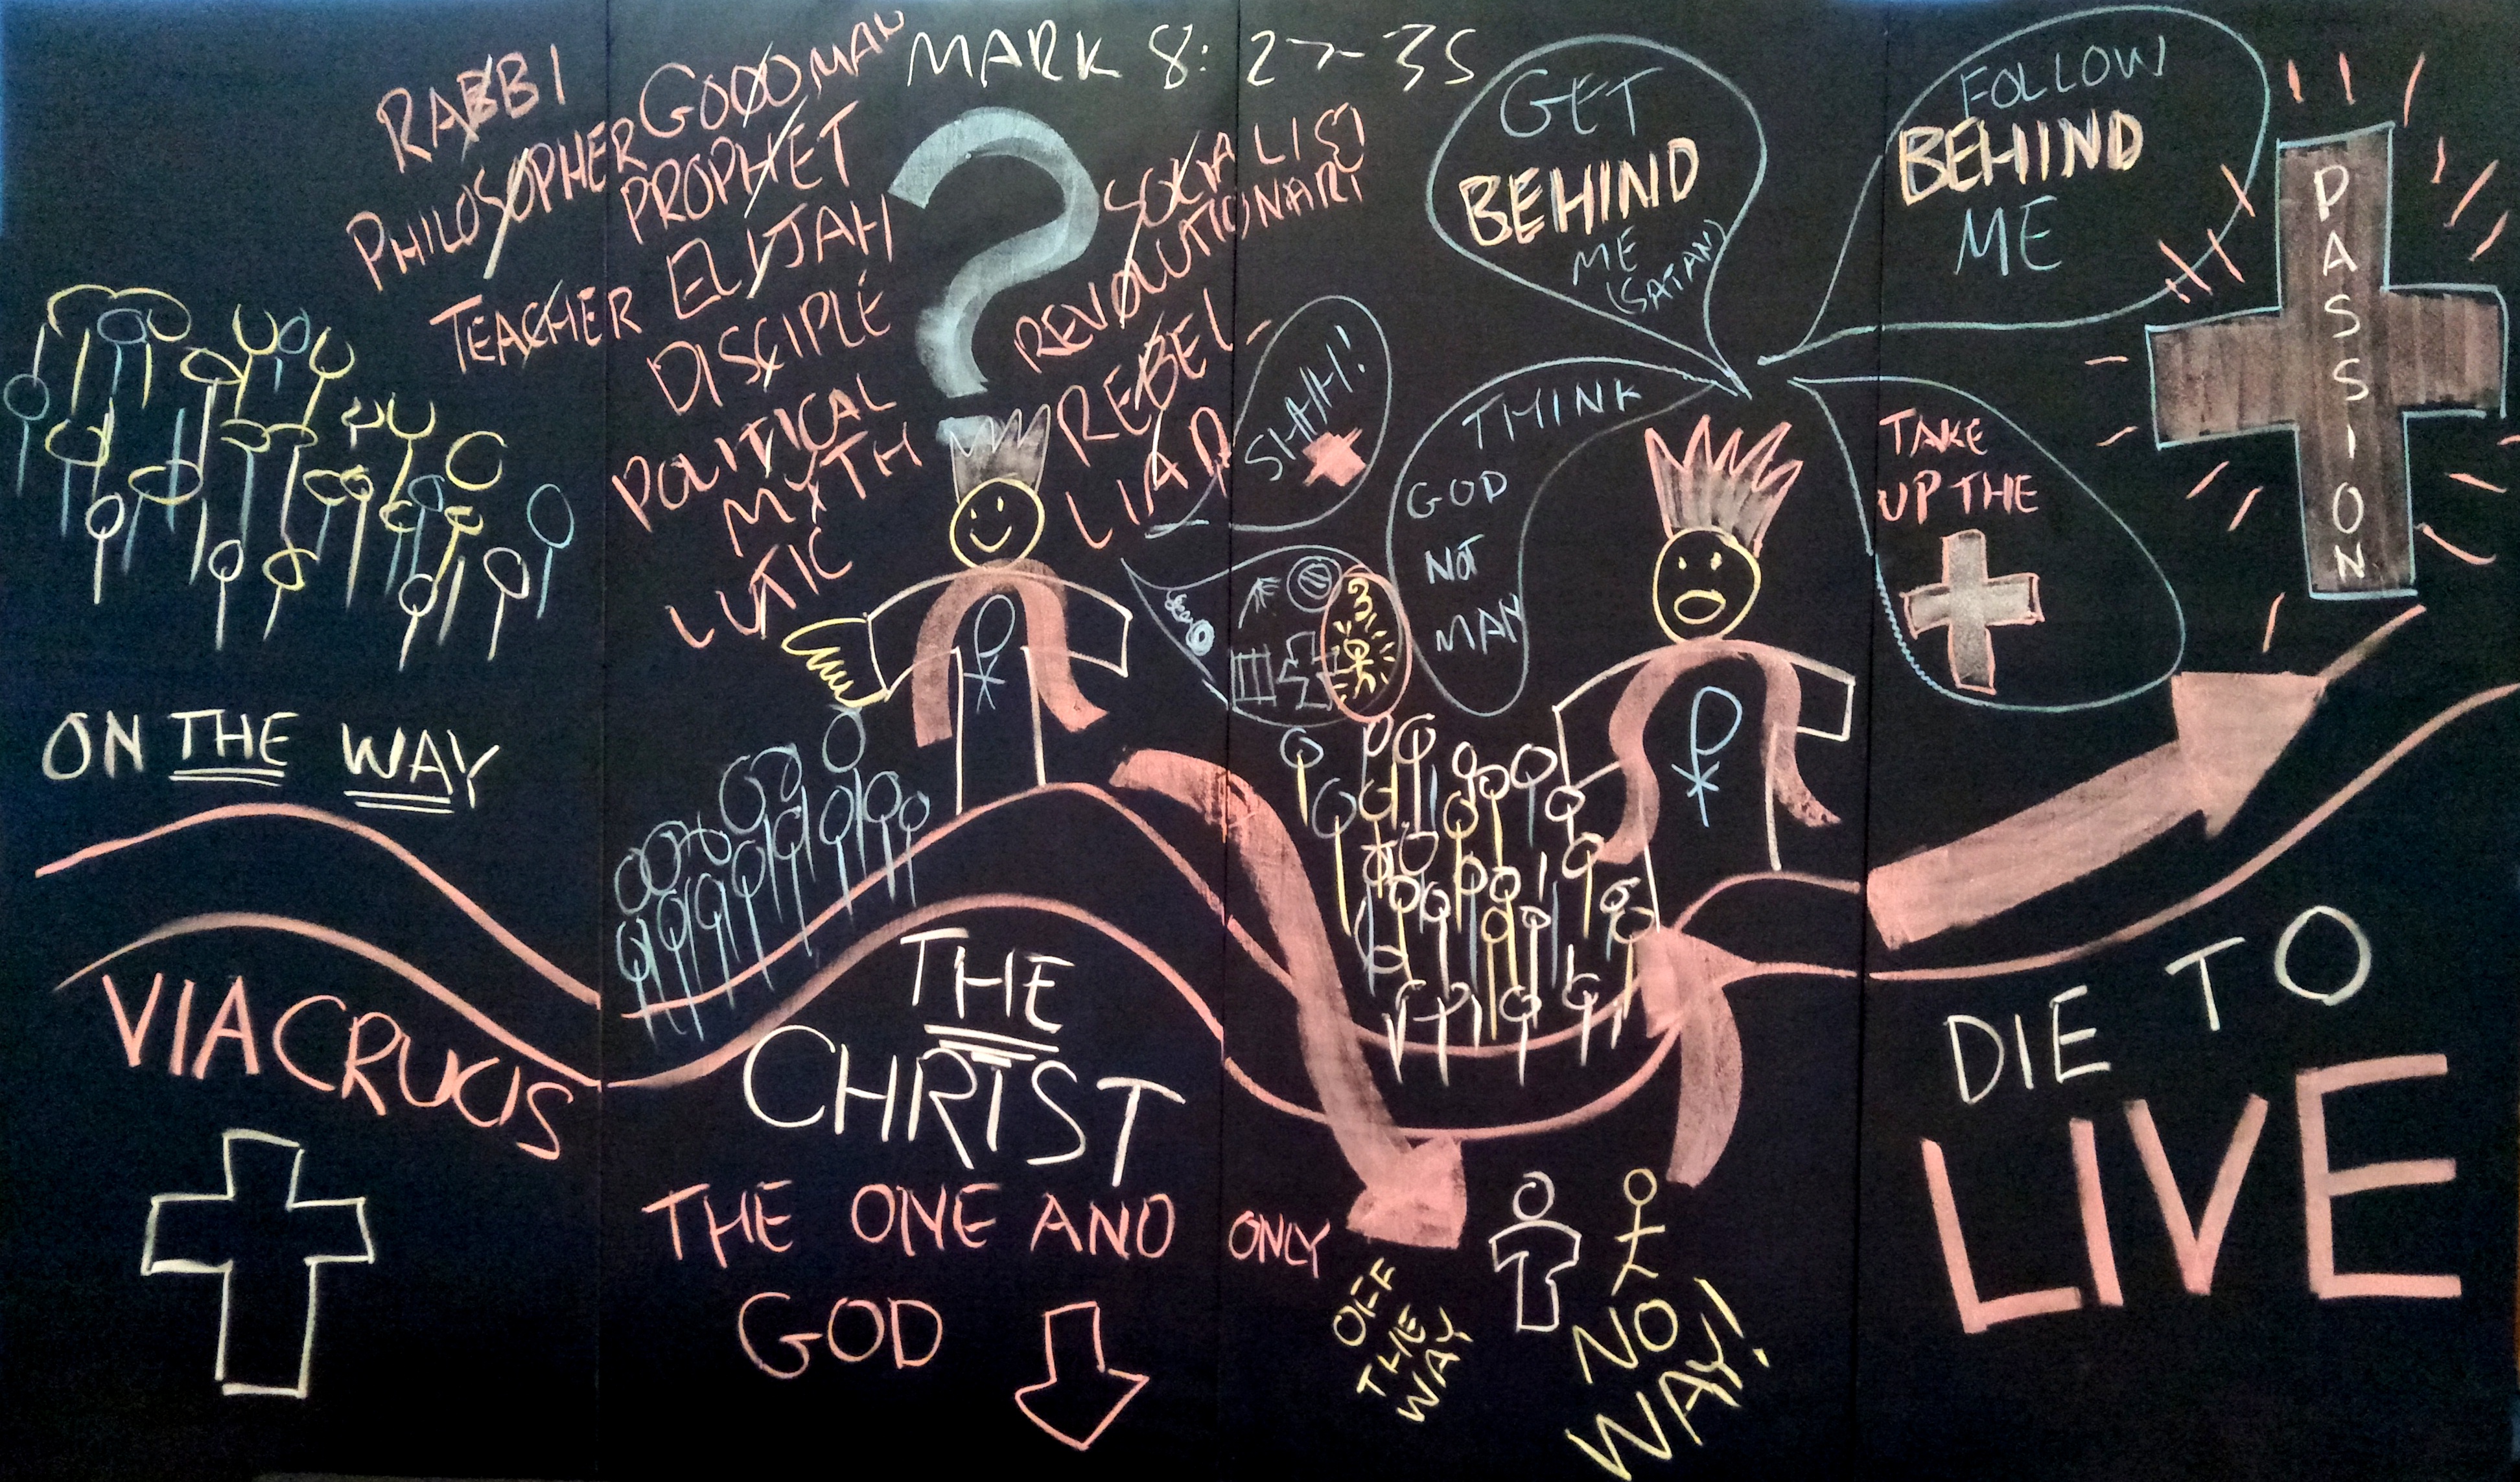 MARK 8:27-35
RABBI
PHILOSOPHER
TEACHER
GOOD MAN
PROPHET
ELIJAH
DISCIPLE
POLITICAL
MYTH
LUTIC
SOCIALIST
REVOLUTIONARY
REBEL
LIAR
?
SHHH!
GET
BEHIND
ME
(SATAN)
FOLLOW
BEHIND
ME
THINK
GOD
NOT
MAN
TAKE
UP THE
PASSION
3
ON THE WAY
VIA CRUCIS
THE
CHRIST
THE ONE AND ONLY
GOD
OFF
THE
WAY
NO
WAY!
DIE TO
LIVE